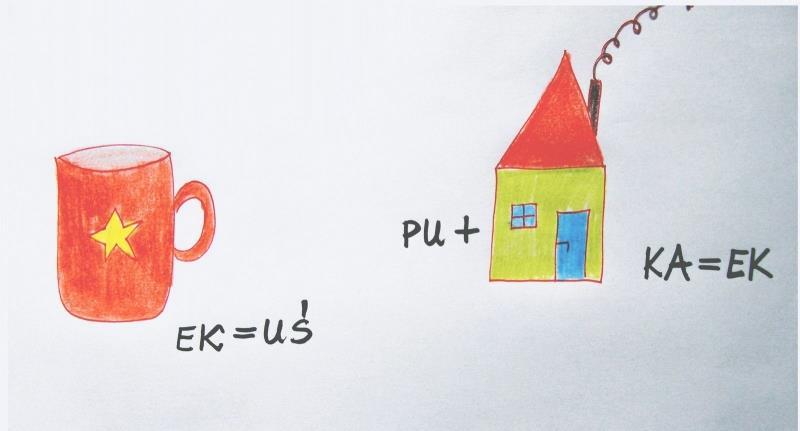 EK=UŚ
PU+
KA=EK